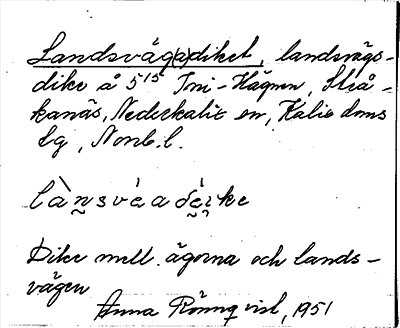 Landsväg(a)diket, landsvägs-
dike å 5¹⁵ Tni-Hägnen, Strå-
kanäs, Nederkalix sn, Kalix doms
lg, Norrb. l.
lànsvéa déike
Dike mell. ägorna och lands-
vägen
Anna Rönnqvist, 1951